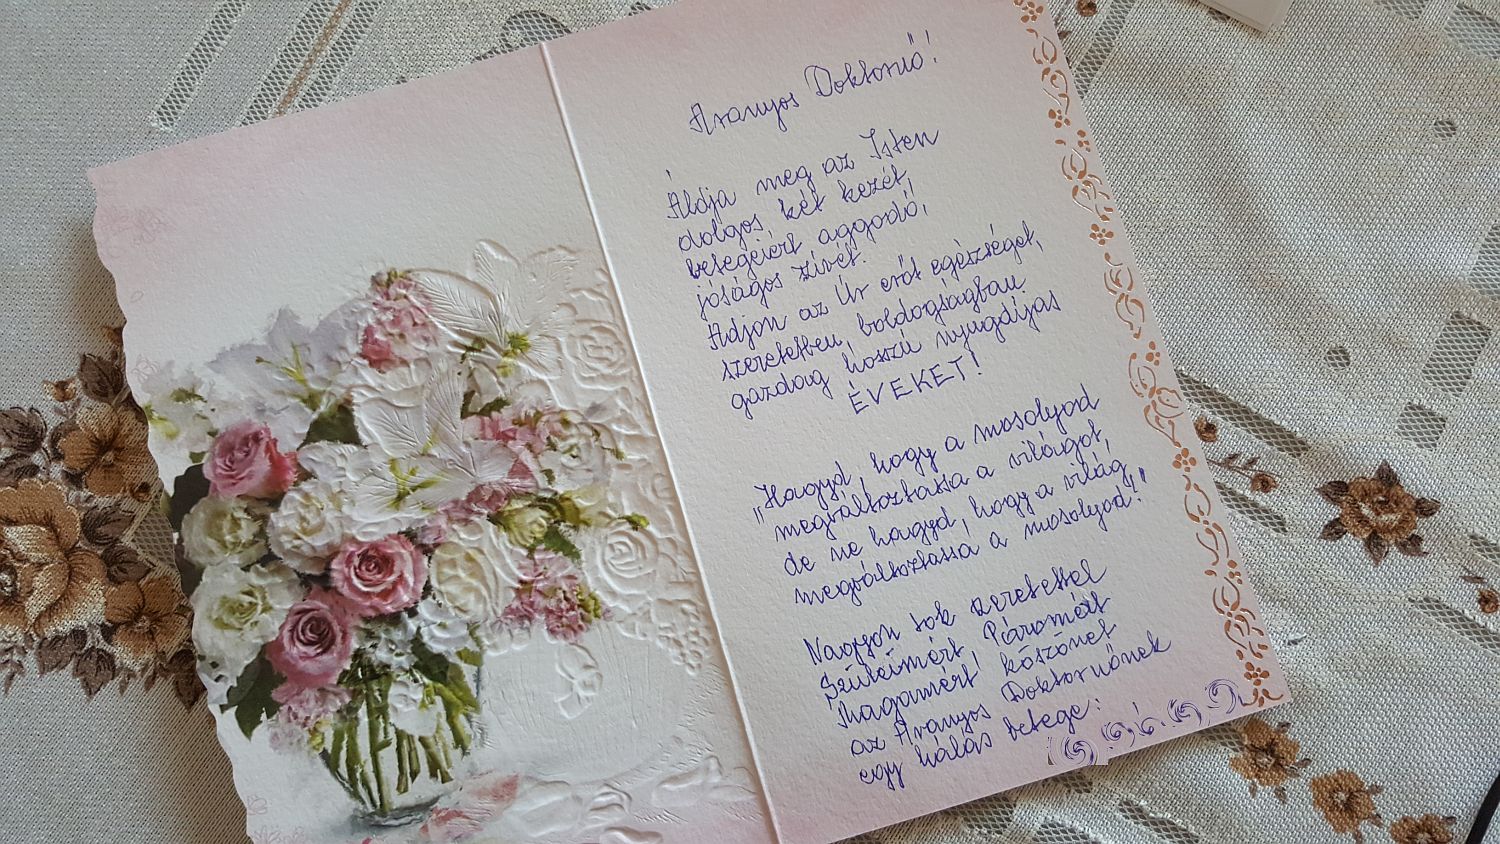 Aranyos Doktornő!
Áldja meg az Isten
dolgos két kezét,
betegeiért aggodó,
jóságos szívét.
Adjon az Úr erőt egészséget,
szeretetben, boldogságban
gazdag hosszú nyugdíjas
ÉVEKET!
„Hagyd, hogy a mosolyod
megváltoztassa a világot,
de ne hagyd, hogy a világ
megváltoztassa a mosolyod!"
Nagyon sok szeretettel
Szüleimért, Páromért
Magamért köszönet
az Aranyos Doktornőnek
egy hálás betege: